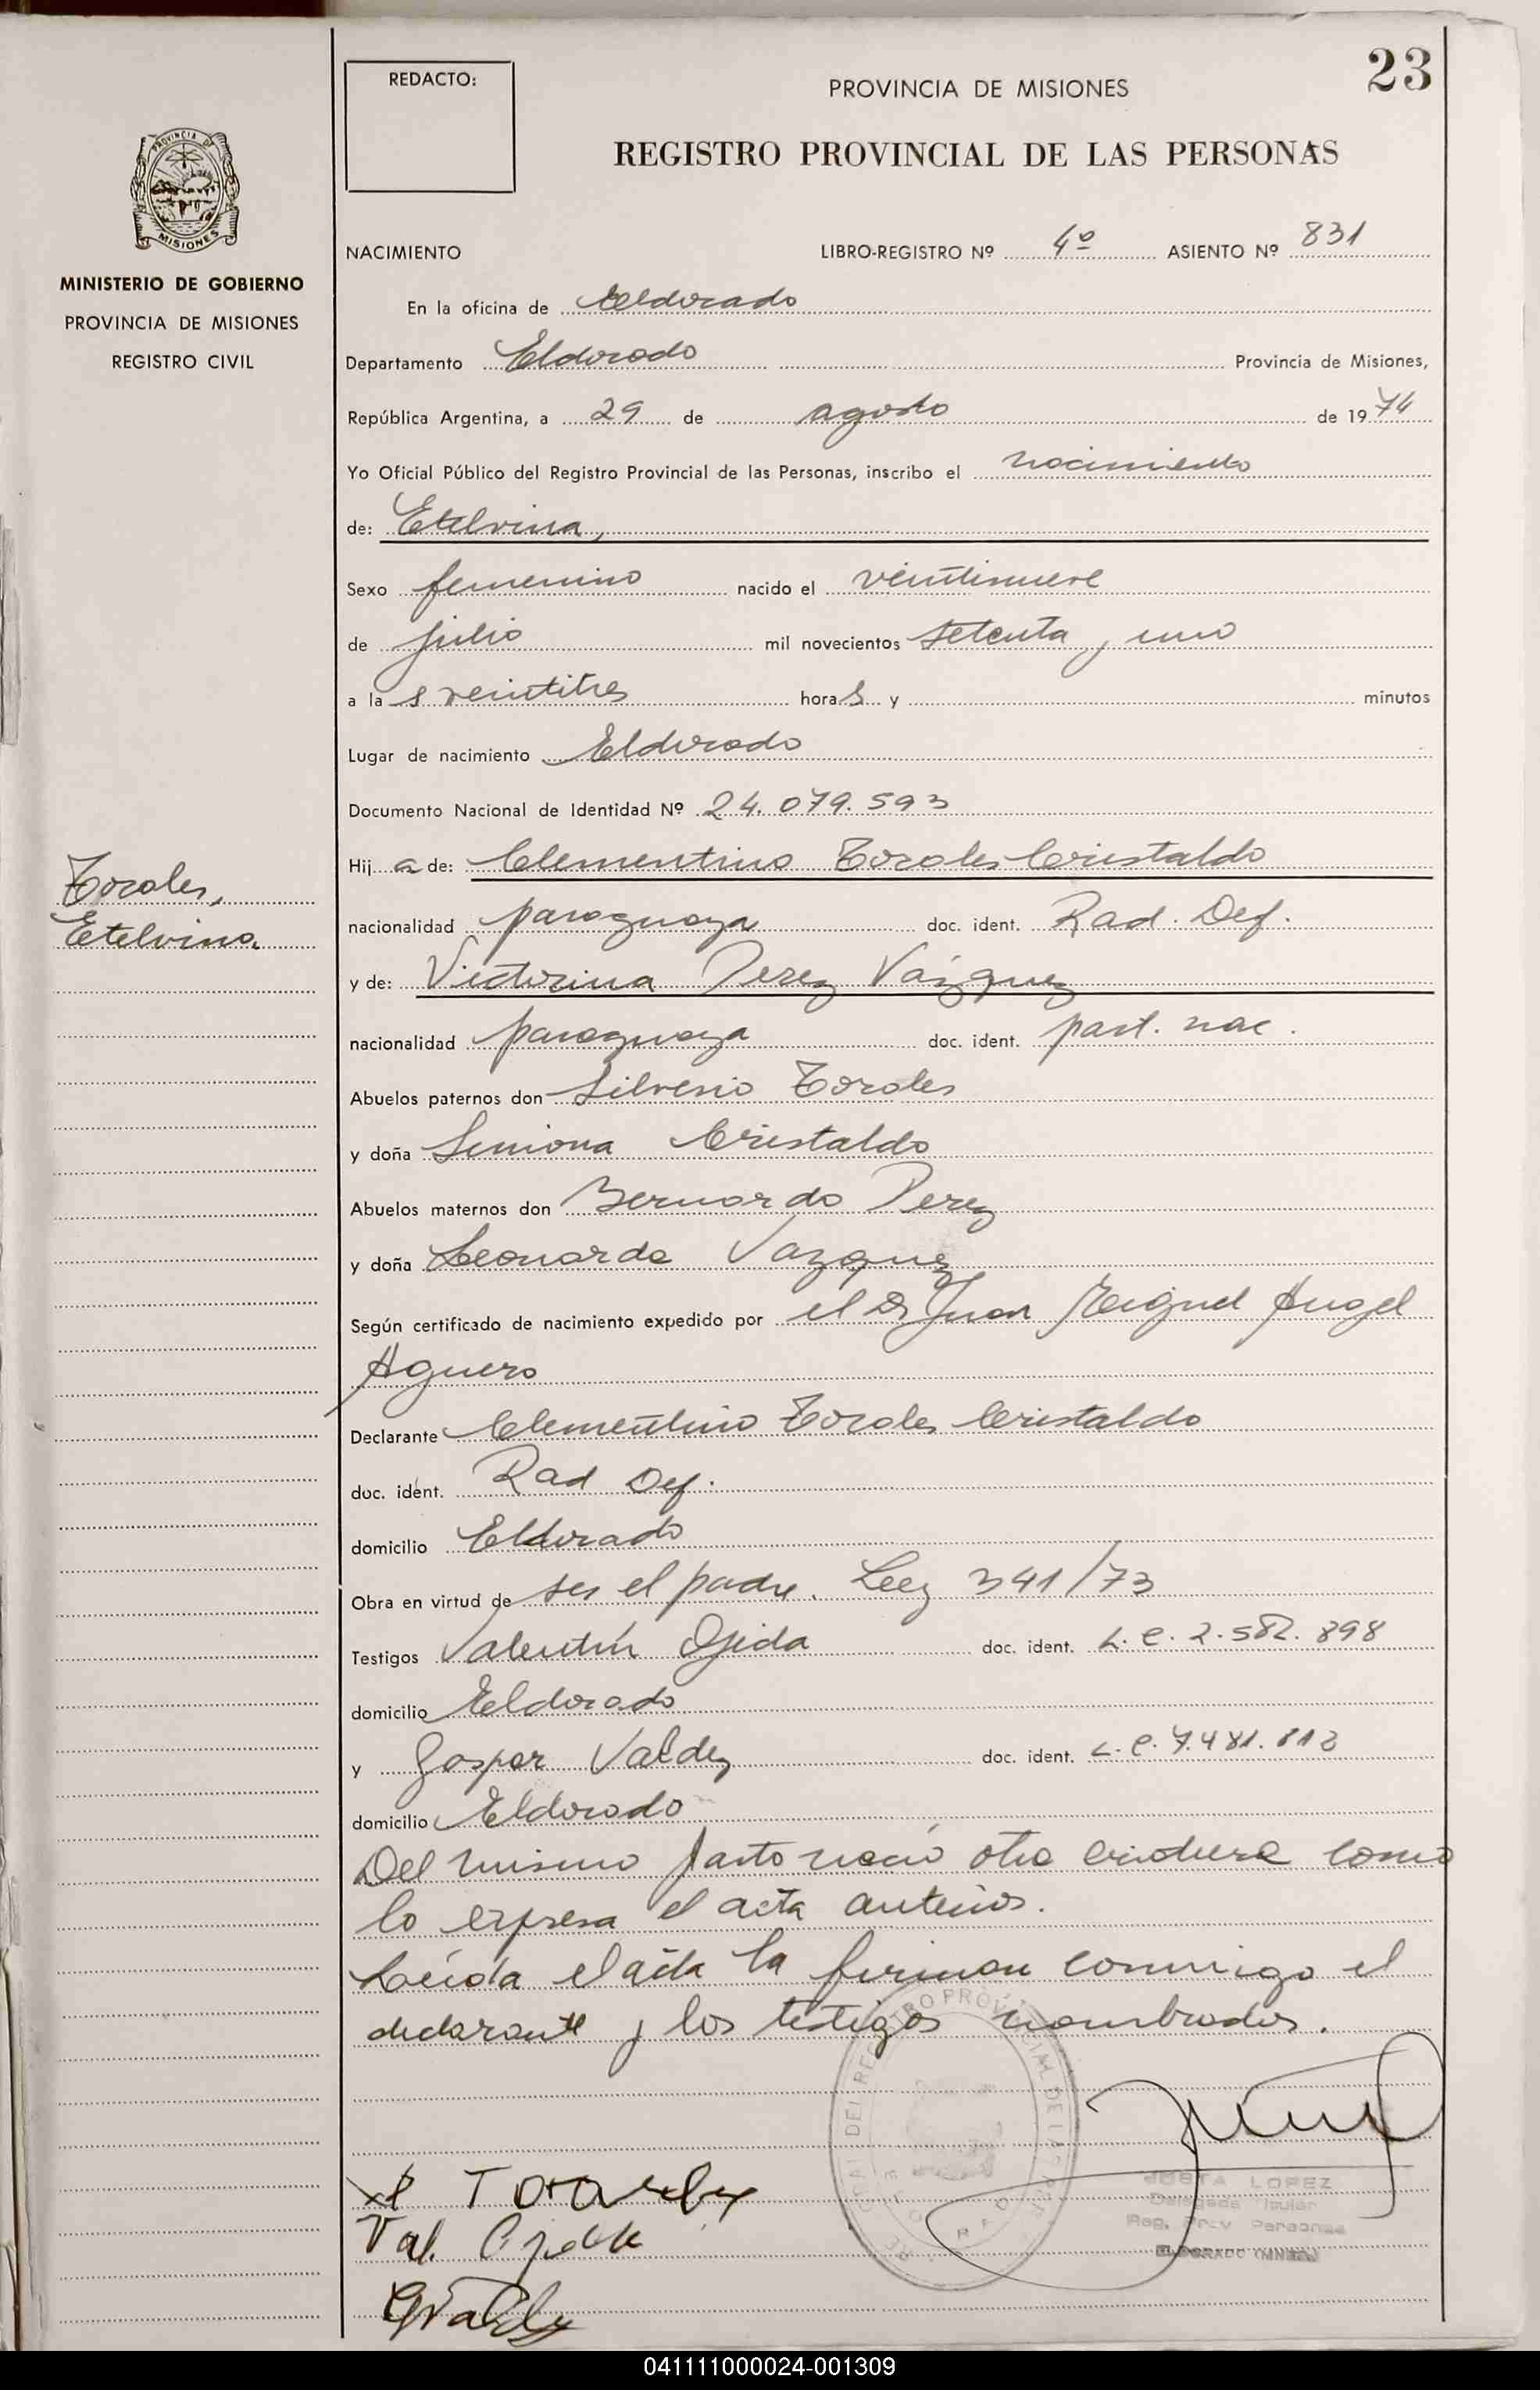 23
REDACTO:
PROVINCIA DE MISIONES
REGISTRO PROVINCIAL DE LAS PERSONAS
PROVINCIA DE
MISIONES
MINISTERIO DE GOBIERNO
PROVINCIA DE MISIONES
REGISTRO CIVIL
NACIMIENTO LIBRO-REGISTRO Nº 4º ASIENTO Nº 831
En la oficina de Eldorado
Departamento Eldorado Provincia de Misiones,
República Argentina, a 29 de agosto de 1974
Yo Oficial Público del Registro Provincial de las Personas, inscribo el nacimiento
de: Etelvina,
Sexo femenino nacido el veintinueve
de julio mil novecientos setenta y uno
a la s veintitres horas y minutos
Lugar de nacimiento Eldorado
Documento Nacional de Identidad Nº 24.079.593
Torales,
Etelvina.
Hij a de: Clementino Torales Cristaldo
nacionalidad paraguaya doc. ident. Rad. Def.
y de: Victorina Perez Vázquez
nacionalidad paraguaya doc. ident. part. nac.
Abuelos paternos don Silverio Torales
y doña Simona Cristaldo
Abuelos maternos don Bernardo Perez
y doña Leonarda Vazquez
Según certificado de nacimiento expedido por el Dr Juan Miguel Angel
Aguero
Declarante Clementino Torales Cristaldo
doc. ident. Rad Def.
domicilio Eldorado
Obra en virtud de ser el padre. Ley 341/73
Testigos Valentín Ojeda doc. ident. L. e. 2.582.898
domicilio Eldorado
y Gaspar Valdez doc. ident. L. e. 7.481.813
domicilio Eldorado
Del mismo parto nació otra criatura como
lo expresa el acta anterior.
Leída el acta la firman conmigo el
declarante y los testigos nombrados.
Val. Ojeda
JUSTA LOPEZ
Delegada Titular
Reg. Prov Personas
ELDORADO (MNES.)
041111000024-001309